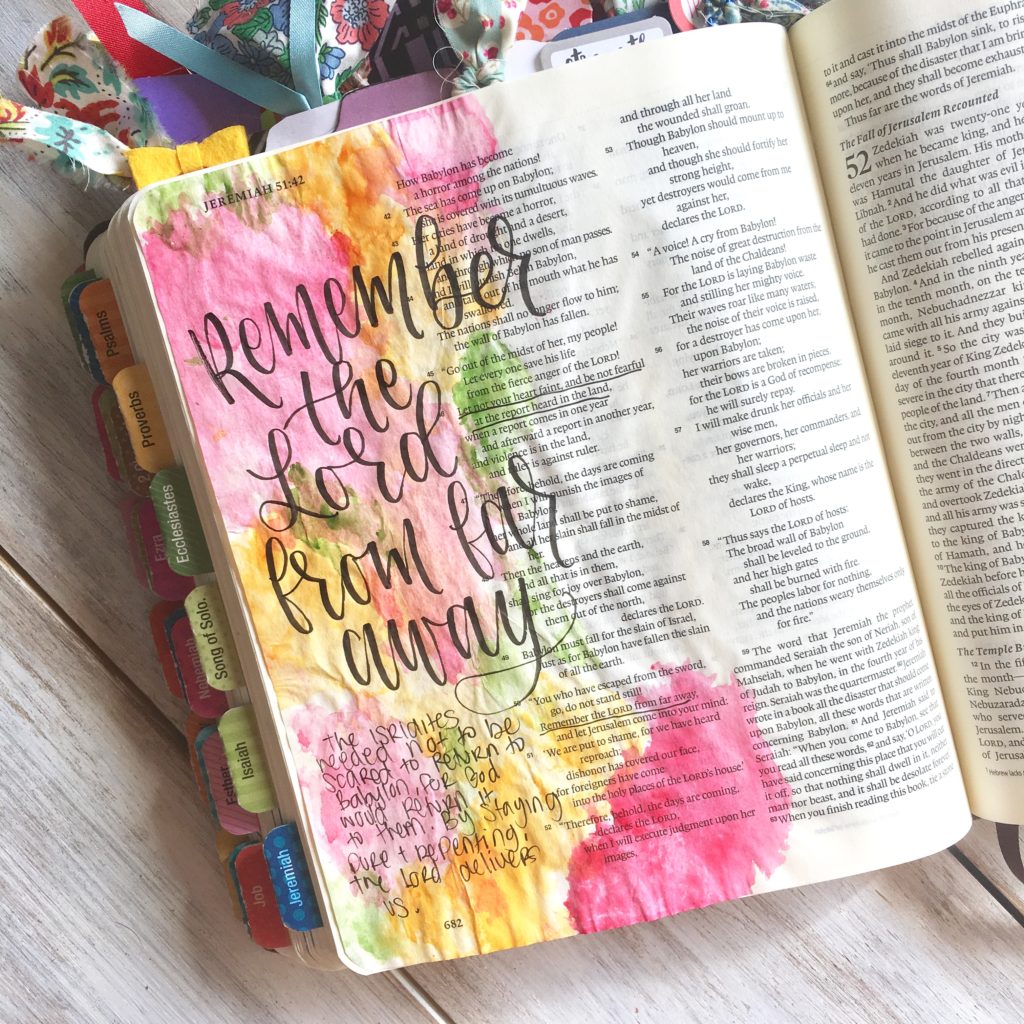 Psalms
Proverbs
Ezra
Ecclesiastes
Nehemiah
Song of Solo.
Esther
Isaiah
Job
Jeremiah
JEREMIAH 51:42
Remember
the
Lord
from far
away
the ISRAITES
needed not to be
scared to return to
Babylon, for God
would return it
to them. By staying
pure + repenting,
the Lord delivers
us.
682
How Babylon has become
a horror among the nations!
42 The sea has come up on Babylon;
she is covered with its tumultuous waves.
43 Her cities have become a horror,
a land of drought and a desert,
land in which no one dwells,
and through which no son of man passes.
44 And I will punish Bel in Babylon,
and take out of his mouth what he has
swallowed.
The nations shall no longer flow to him;
the wall of Babylon has fallen.
45 "Go out of the midst of her, my people!
Let every one save his life
from the fierce anger of the LORD!
46 Let not your heart faint, and be not fearful
at the report heard in the land,
when a report comes in one year
and afterward a report in another year,
and violence is in the land,
and ruler is against ruler.
47 "Therefore, behold, the days are coming
when I will punish the images of
Babylon;
her whole land shall be put to shame,
and all her slain shall fall in the midst of
her.
48 Then the heavens and the earth,
and all that is in them,
shall sing for joy over Babylon,
for the destroyers shall come against
them out of the north,
declares the LORD.
49 Babylon must fall for the slain of Israel,
just as for Babylon have fallen the slain
of all the earth.
50 "You who have escaped from the sword,
go, do not stand still!
Remember the LORD from far away,
and let Jerusalem come into your mind:
51 'We are put to shame, for we have heard
reproach;
dishonor has covered our face,
for foreigners have come
into the holy places of the LORD's house.'
52 "Therefore, behold, the days are coming,
declares the LORD,
when I will execute judgment upon her
images,
and through all her land
the wounded shall groan.
53 Though Babylon should mount up to
heaven,
and though she should fortify her
strong height,
yet destroyers would come from me
against her,
declares the LORD.
54 "A voice! A cry from Babylon!
The noise of great destruction from the
land of the Chaldeans!
55 For the LORD is laying Babylon waste
and stilling her mighty voice.
Their waves roar like many waters;
the noise of their voice is raised,
56 for a destroyer has come upon her,
upon Babylon;
her warriors are taken;
their bows are broken in pieces,
for the LORD is a God of recompense;
he will surely repay.
57 I will make drunk her officials and her
wise men,
her governors, her commanders, and
her warriors;
they shall sleep a perpetual sleep and not
wake,
declares the King, whose name is the
LORD of hosts.
58 "Thus says the LORD of hosts:
The broad wall of Babylon
shall be leveled to the ground,
and her high gates
shall be burned with fire.
The peoples labor for nothing,
and the nations weary themselves only
for fire."
59 The word that Jeremiah the prophet
commanded Seraiah the son of Neriah, son of
Mahseiah, when he went with Zedekiah king
of Judah to Babylon, in the fourth year of his
reign. Seraiah was the quartermaster. 60 Jeremiah
wrote in a book all the disaster that should come
upon Babylon, all these words that are written
concerning Babylon. 61 And Jeremiah said to
Seraiah: "When you come to Babylon, see that
you read all these words, 62 and say, 'O LORD, you
have said concerning this place that you will cut
it off, so that nothing shall dwell in it, neither
man nor beast, and it shall be desolate forever.'
63 When you finish reading this book, tie a stone
to it and cast it into the midst of the Euphra
64 and say, 'Thus shall Babylon sink, to ris
more, because of the disaster that I am brin
upon her, and they shall become exhaust
Thus far are the words of Jeremiah.
The Fall of Jerusalem Recounted
52 Zedekiah was twenty-one ye
when he became king, and he
eleven years in Jerusalem. His mothe
was Hamutal the daughter of Jer
Libnah. 2 And he did what was evil i
of the LORD, according to all that
had done. 3 For because of the anger
it came to the point in Jerusalem an
he cast them out from his presen
And Zedekiah rebelled against
Babylon. 4 And in the ninth year
in the tenth month, on the te
month, Nebuchadnezzar king
came with all his army against
laid siege to it. And they bui
around it. 5 So the city was
eleventh year of King Zedekia
day of the fourth month t
severe in the city that there
people of the land. 7 Then
the city, and all the men o
out from the city by night
between the two walls,
and the Chaldeans were
they went in the direct
the army of the Chalde
and overtook Zedekiah
and all his army was s
they captured the k
to the king of Baby
of Hamath, and he
10 The king of Baby
Zedekiah before h
all the officials of
the eyes of Zedek
and the king of
and put him in
The Temple B
12 In the fif
the month—
King Nebu
Nebuzarada
who serve
LORD, and
of Jerusa
1 Hebrew lacks